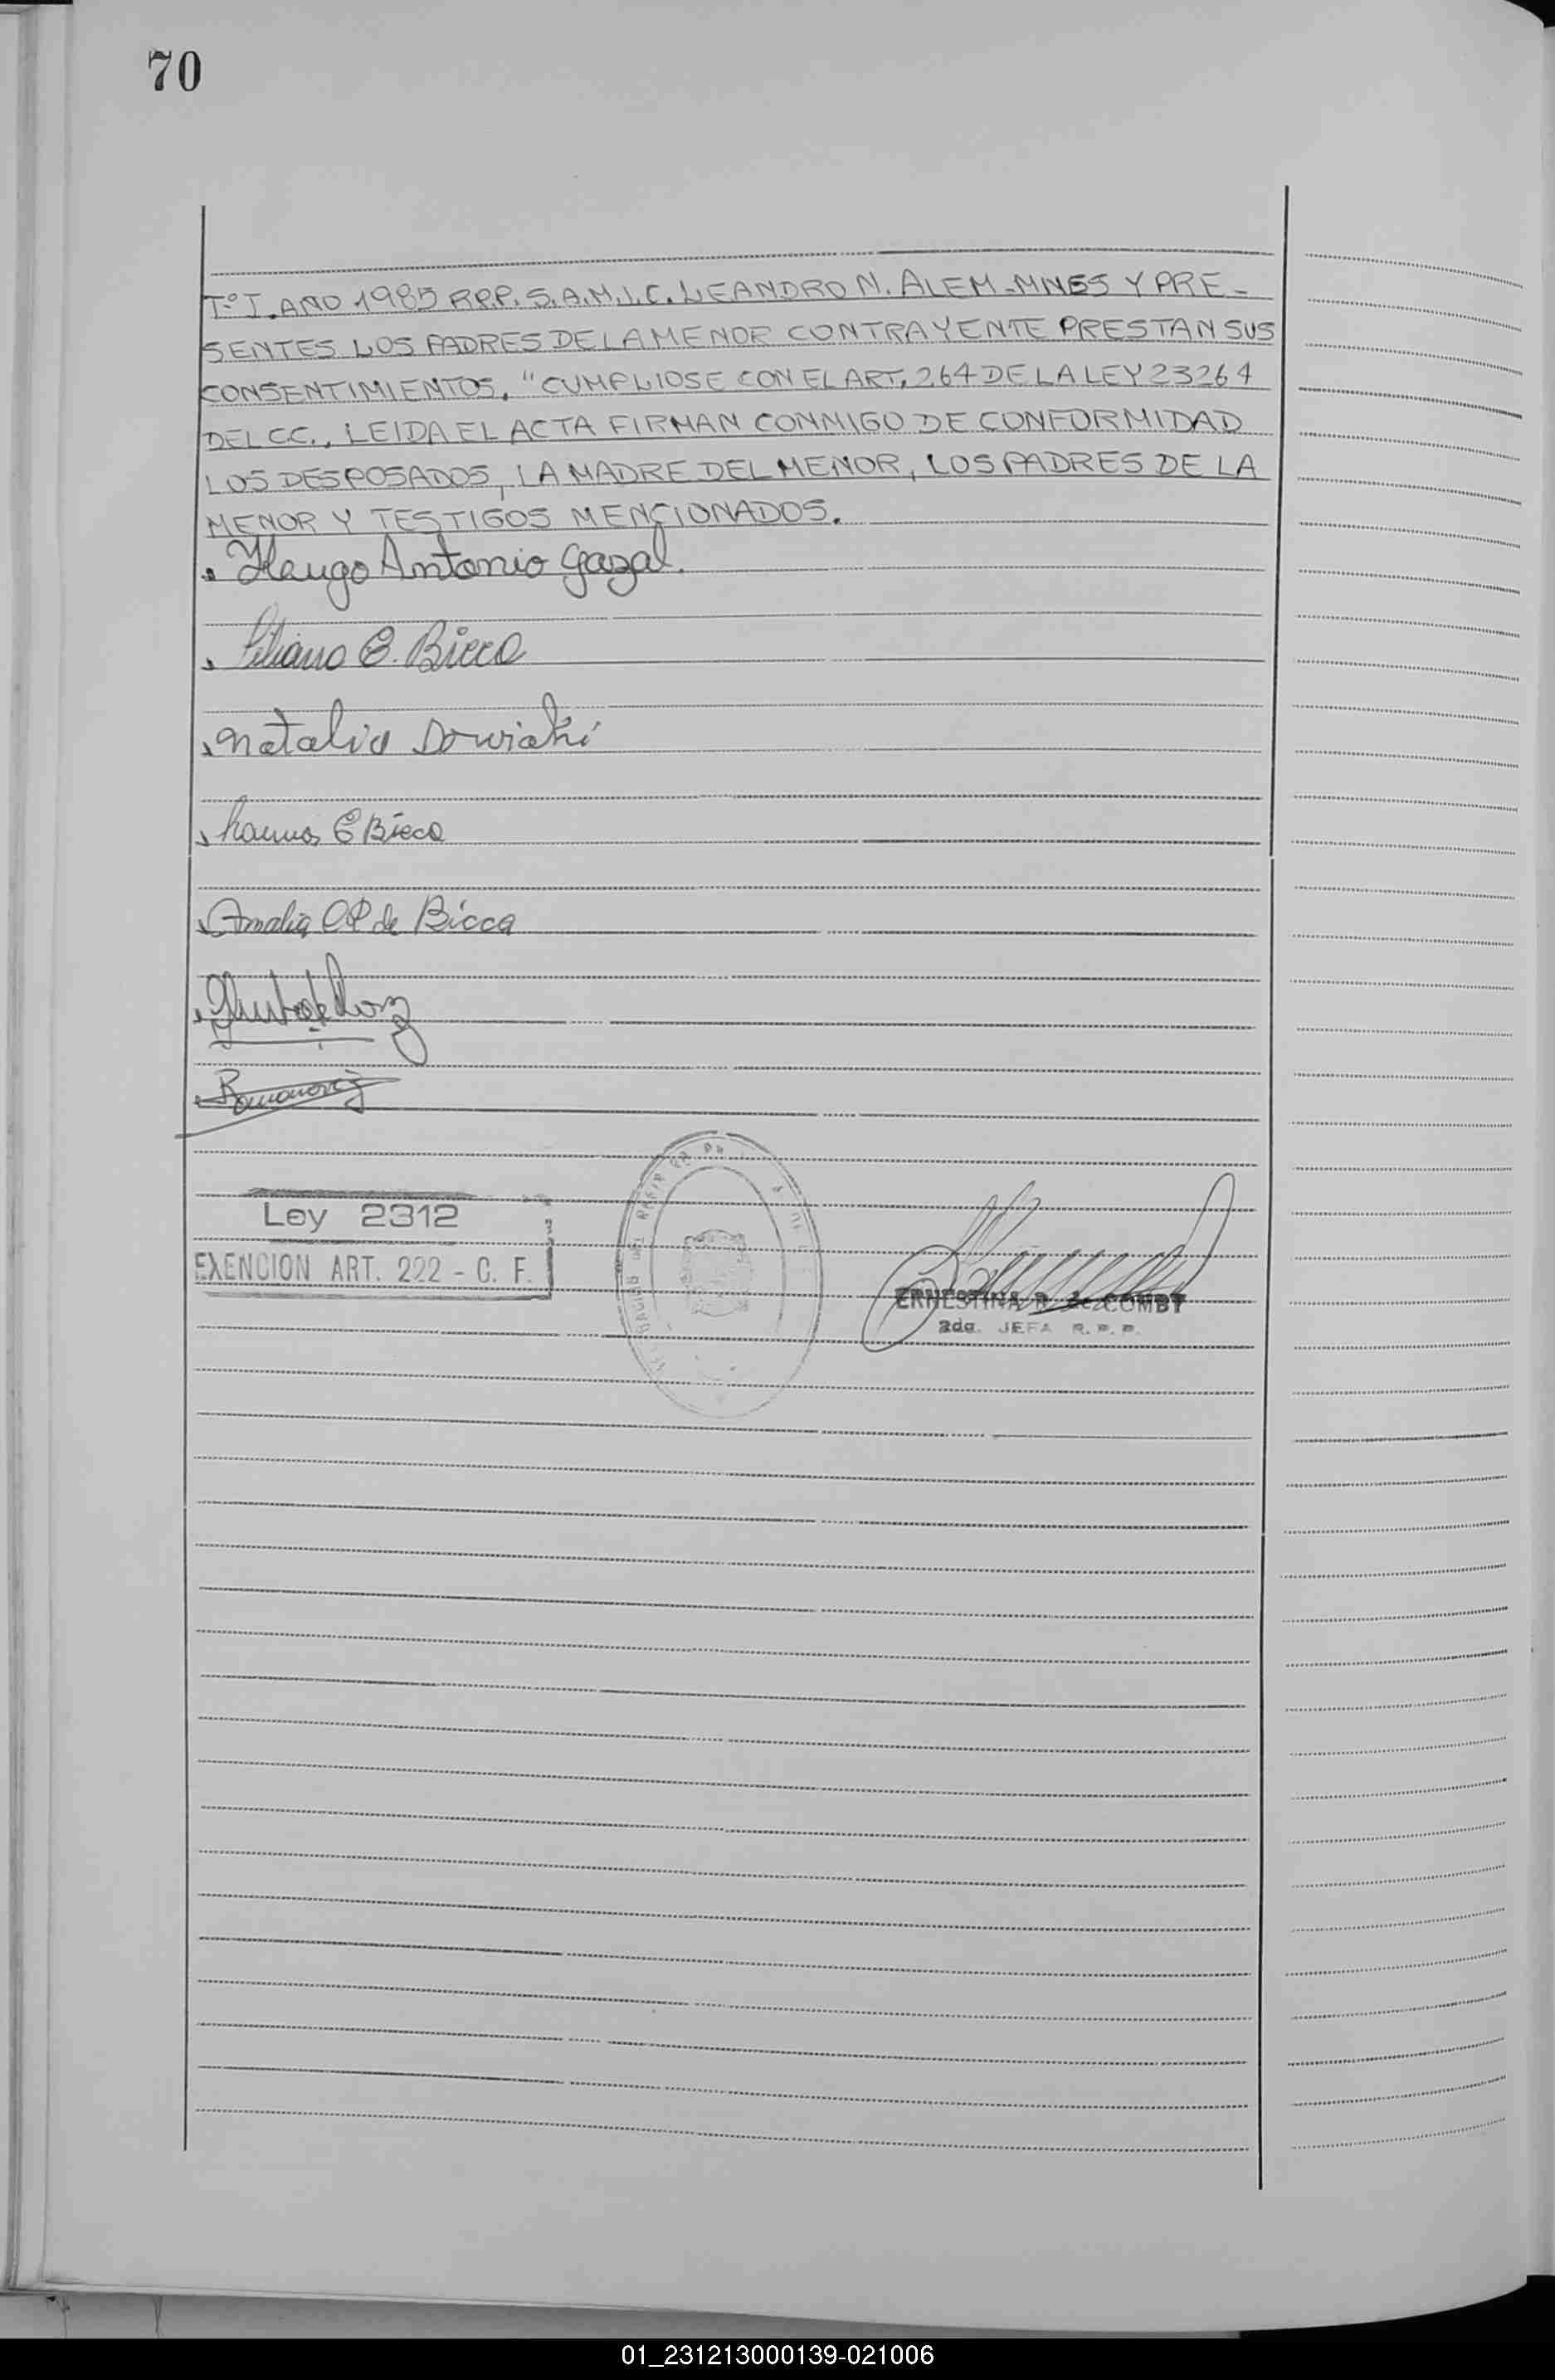 70
Tº I. AÑO 1985 R.P.P. S.A.M.I.C. LEANDRO N. ALEM-MNES Y PRE-
SENTES LOS PADRES DE LA MENOR CONTRAYENTE PRESTAN SUS
CONSENTIMIENTOS. "CUMPLIOSE CON EL ART. 264 DE LA LEY 23264
DEL C.C., LEIDA EL ACTA FIRMAN CONMIGO DE CONFORMIDAD
LOS DESPOSADOS, LA MADRE DEL MENOR, LOS PADRES DE LA
MENOR Y TESTIGOS MENCIONADOS.
Hugo Antonio Gazal.
Liliana E. Bicca
Natalia
E Bicca
Amalia de Bicca
Ley 2312
EXENCION ART. 222 - C. F.
ERNESTINA R. de COMBY
2da. JEFA R. P. P.
01_231213000139-021006